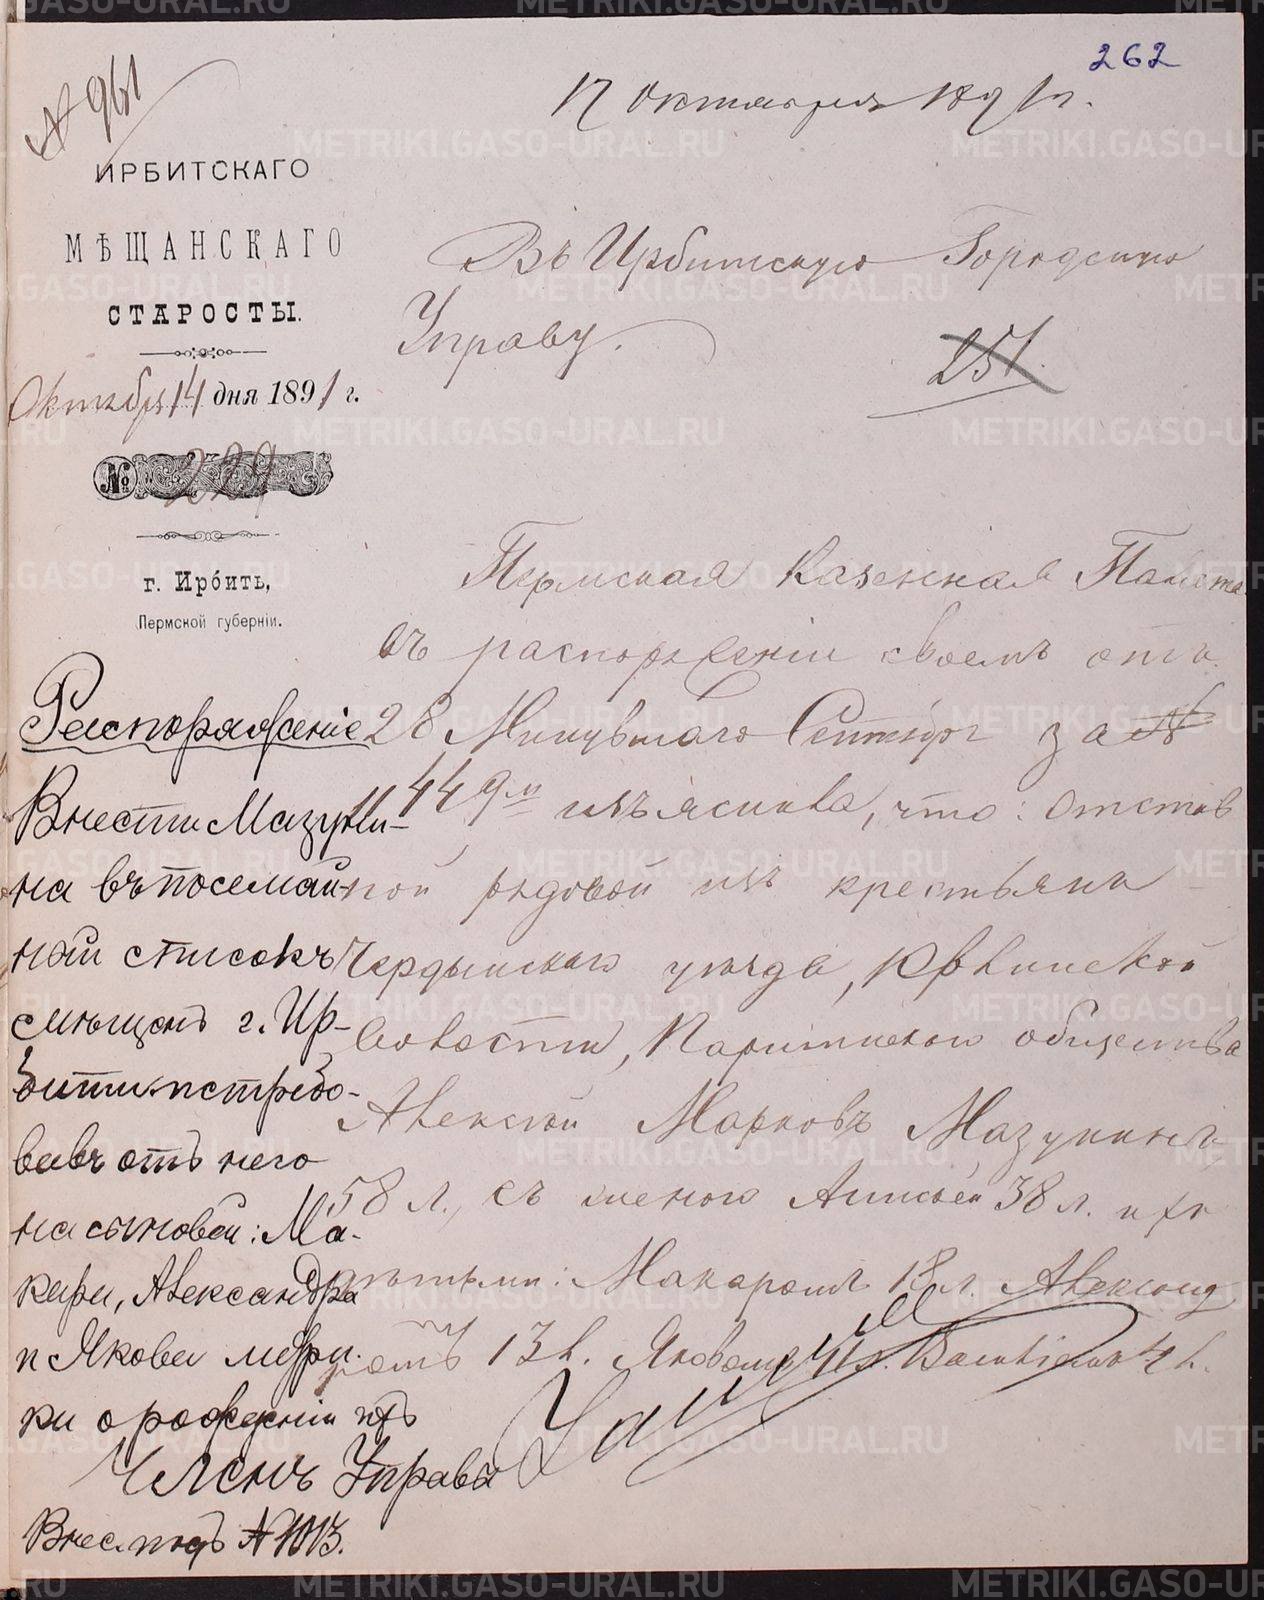 262
№ 961
17 Октября 1891 г.
ИРБИТСКАГО
МѢЩАНСКАГО
СТАРОСТЫ.
Октября 14 дня 1891 г.
№ 229
г. Ирбить,
Пермской губерніи.
Въ Ирбитскую Городскую
Управу.
251.
Пермская Казенная Палата
въ распоряженіи своемъ отъ
28 Минувшаго Сентября за №
449 изъяснила, что: отстав
ной рядовой изъ крестьянъ
Чердынскаго уѣзда,
волости, общества
Алексѣй Марковъ Мазунинъ
58 л., съ женою Анисьей 38 л. и их
дѣтьми: Макаромъ 18 л. Александ
ромъ 13 л. Яковомъ Василіемъ 4 л.
Распоряженіе
Внести Мазуни-
на въ посемей-
ный списокъ
мѣщанъ г. Ир-
бити истребо-
вавъ отъ него
на сыновей: Ма-
кара, Александра
и Якова метри-
ки о рожденіи ихъ
Членъ Управы
Внес. подъ № 1013.
METRIKI.GASO-URAL.RU